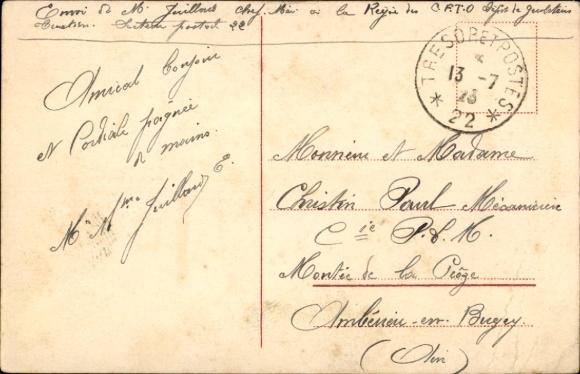 Envoi de Mr Juillard Chef Méc. à la Régie du C.F.T.O Dépôt de
Secteur postal 22
TRESOR ET POSTES
13 -7
23
* 22 *
Amical bonjour
et Cordiale poignée
de mains.
Mr Mme Juillard E.
Monsieur et Madame
Christin Paul Mécanicien
Cie P.L.M.
Montée de la
Ambérieu-en-Bugey
(Ain)